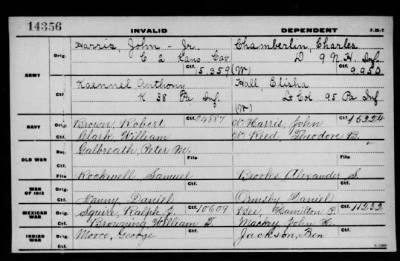 14356
INVALID DEPENDENT
ARMY
Orig. Harris, John - Jr. Chamberlin, Charles
C 2 Kans Cav D 9 N.H. Inf.
Ctf. 15.359 (W) Ctf. 9.950
Orig. Anthony Hall, Elisha
K 38 Pa Inf. Lt Col 95 Pa Inf
Ctf. (W) Ctf.
NAVY
Orig. Brown, Robert Harris, John
Ctf. Clark William Reed, Theodore B.
OLD WAR
Galbreath, Peter M.
File File
Rockwell Samuel Brooks Alexander S.
Ctf. Ctf.
WAR OF 1812
Daniel Ormsby Daniel
MEXICAN WAR
Orig. Squire, Ralph 10609 Bee, Hamilton P. 11233
Ctf. Browning William T. John
INDIAN WAR
Orig. Moore, George Jackson, Ben
Ctf.